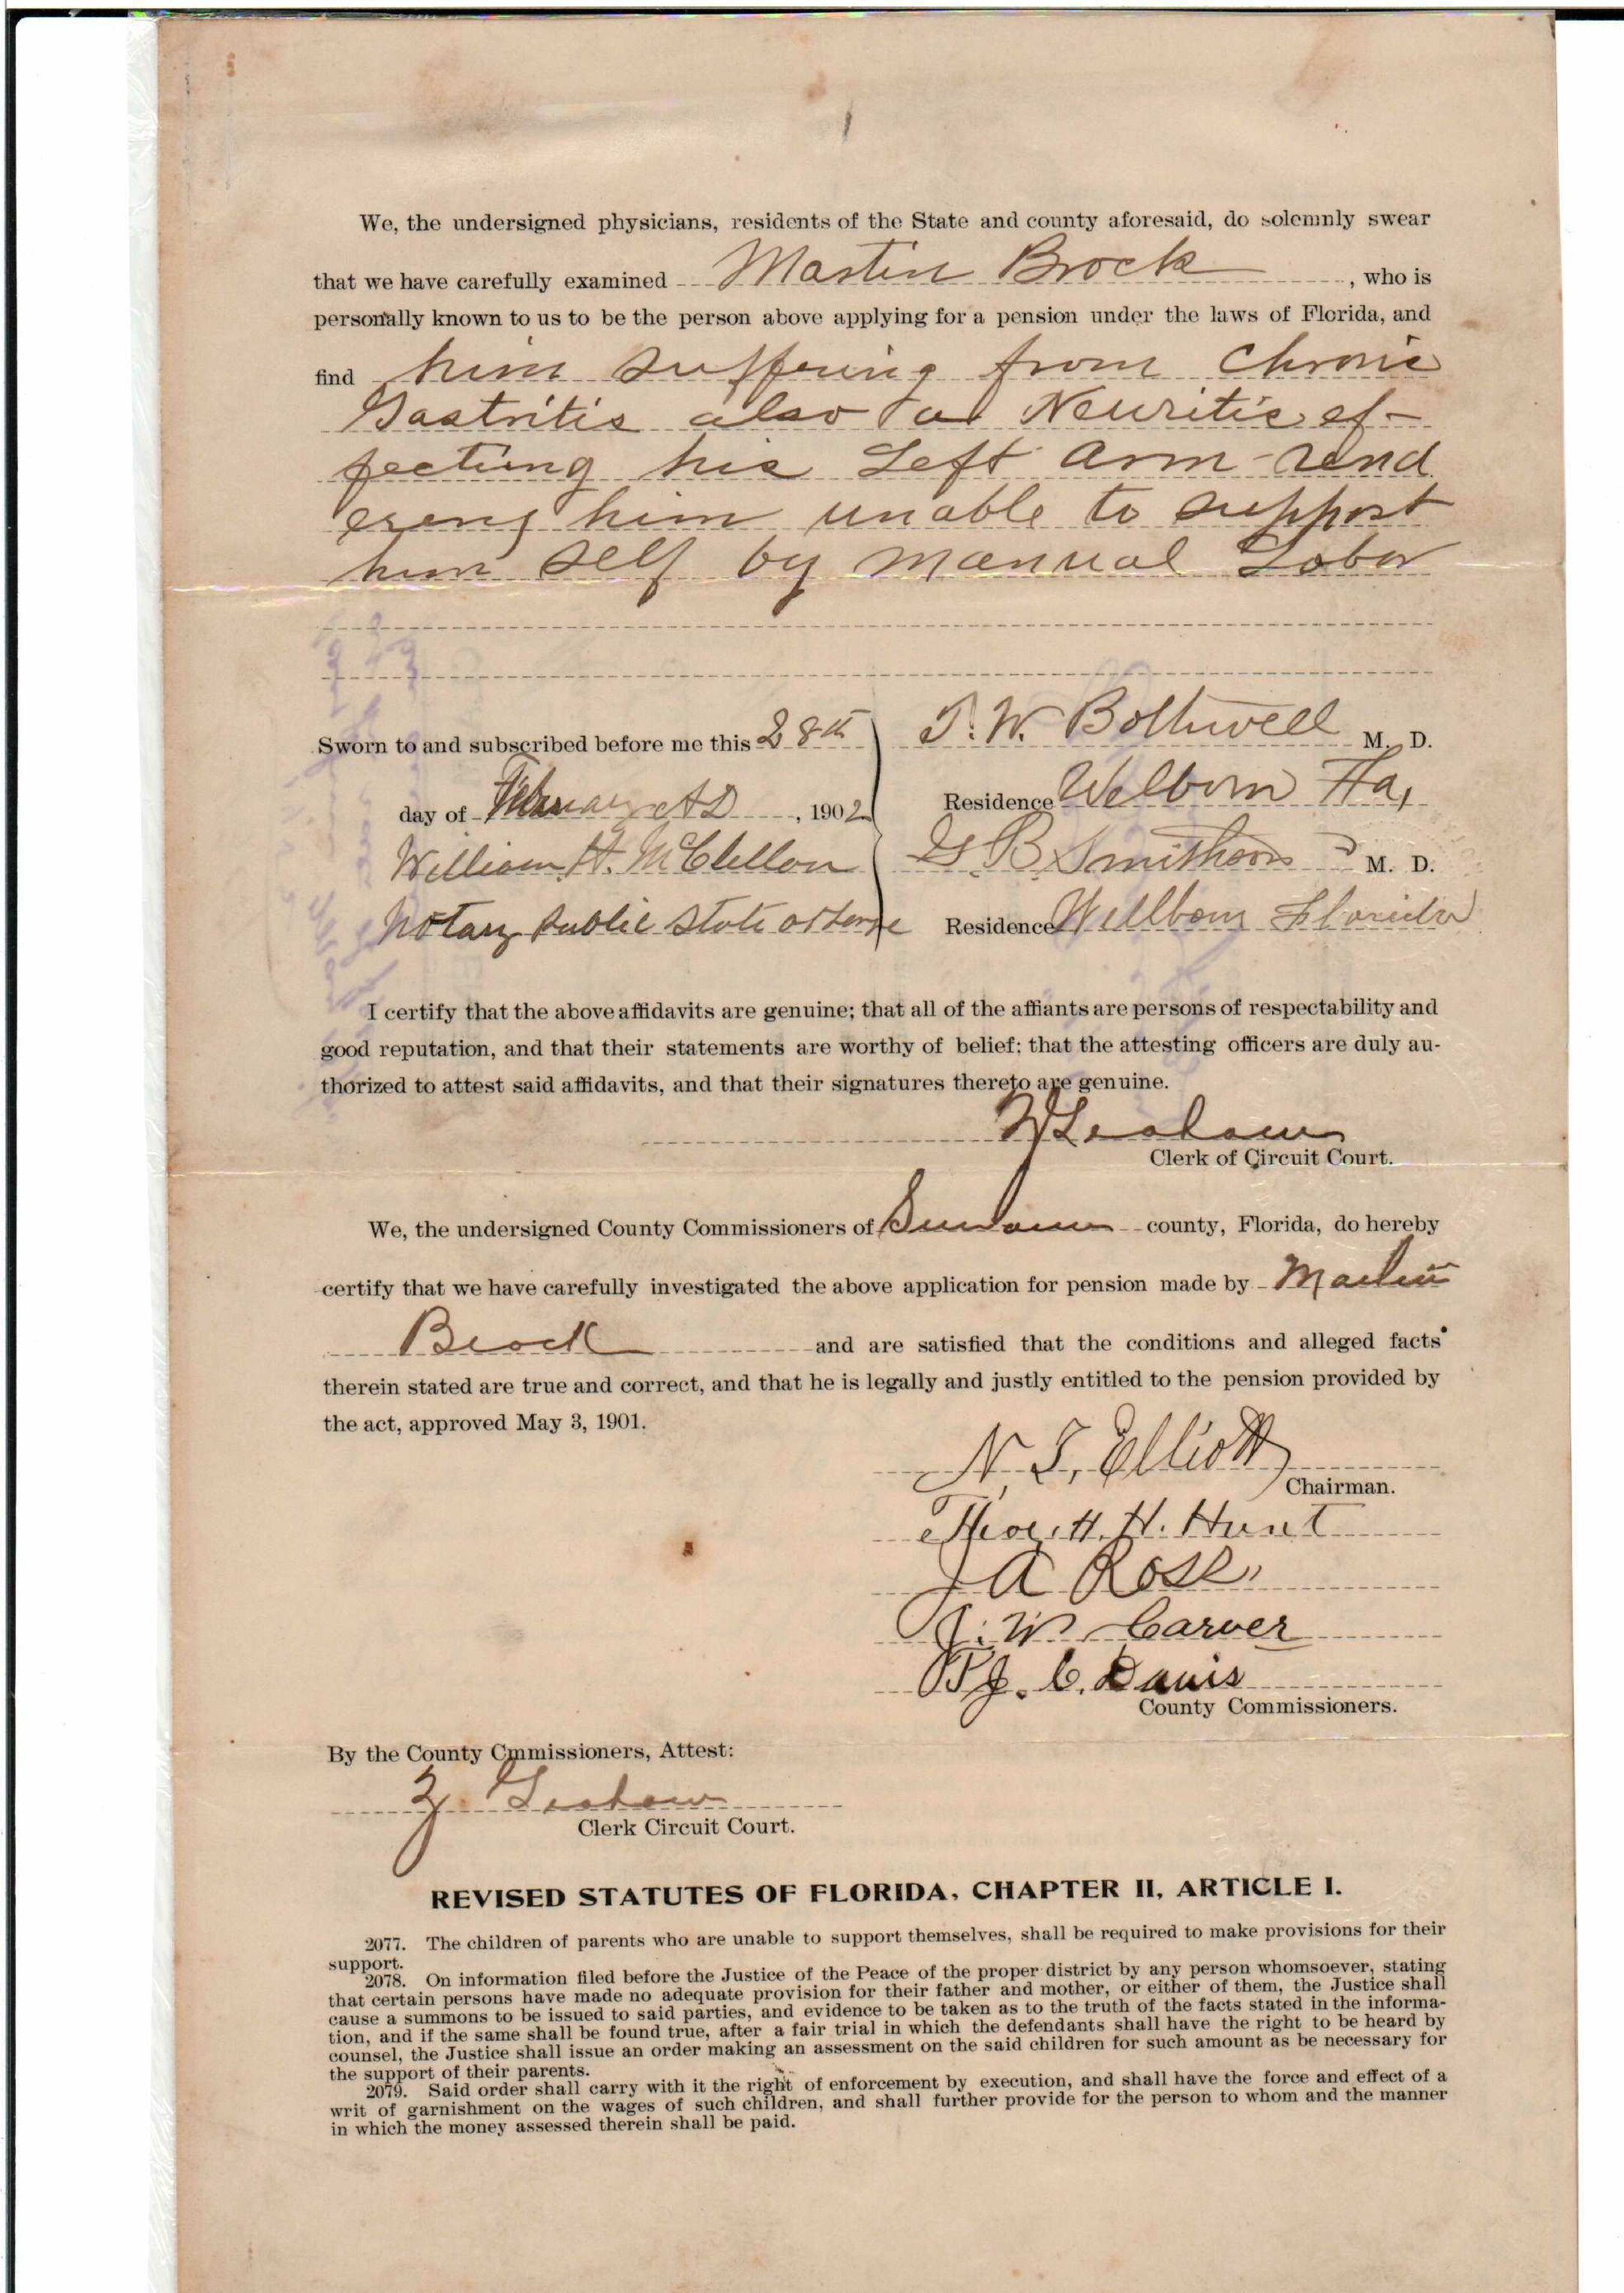 We, the undersigned physicians, residents of the State and county aforesaid, do solemnly swear
that we have carefully examined Martin Brock, who is
personally known to us to be the person above applying for a pension under the laws of Florida, and
find him suffering from Chronic
Gastritis also a Neuritis ef-
fecting his Left arm rend
ering him unable to support
him self by manual Labor
Sworn to and subscribed before me this 28th
T. W. Bothwell M. D.
day of February AD, 1902
Residence Welborn Fla,
William H. McClellon
G B Smithson M. D.
Notary Public State at Large
Residence Wellborn Florida
I certify that the above affidavits are genuine; that all of the affiants are persons of respectability and
good reputation, and that their statements are worthy of belief; that the attesting officers are duly au-
thorized to attest said affidavits, and that their signatures thereto are genuine.
Clerk of Circuit Court.
We, the undersigned County Commissioners of Suwannee county, Florida, do hereby
certify that we have carefully investigated the above application for pension made by Martin
Brock and are satisfied that the conditions and alleged facts
therein stated are true and correct, and that he is legally and justly entitled to the pension provided by
the act, approved May 3, 1901.
Elliott
Chairman.
H. Hunt
J A Ross
J. W Carver
J. C. Davis
County Commissioners.
By the County Cmmissioners, Attest:
Clerk Circuit Court.
REVISED STATUTES OF FLORIDA, CHAPTER II, ARTICLE I.
2077. The children of parents who are unable to support themselves, shall be required to make provisions for their
support.
2078. On information filed before the Justice of the Peace of the proper district by any person whomsoever, stating
that certain persons have made no adequate provision for their father and mother, or either of them, the Justice shall
cause a summons to be issued to said parties, and evidence to be taken as to the truth of the facts stated in the informa-
tion, and if the same shall be found true, after a fair trial in which the defendants shall have the right to be heard by
counsel, the Justice shall issue an order making an assessment on the said children for such amount as be necessary for
the support of their parents.
2079. Said order shall carry with it the right of enforcement by execution, and shall have the force and effect of a
writ of garnishment on the wages of such children, and shall further provide for the person to whom and the manner
in which the money assessed therein shall be paid.